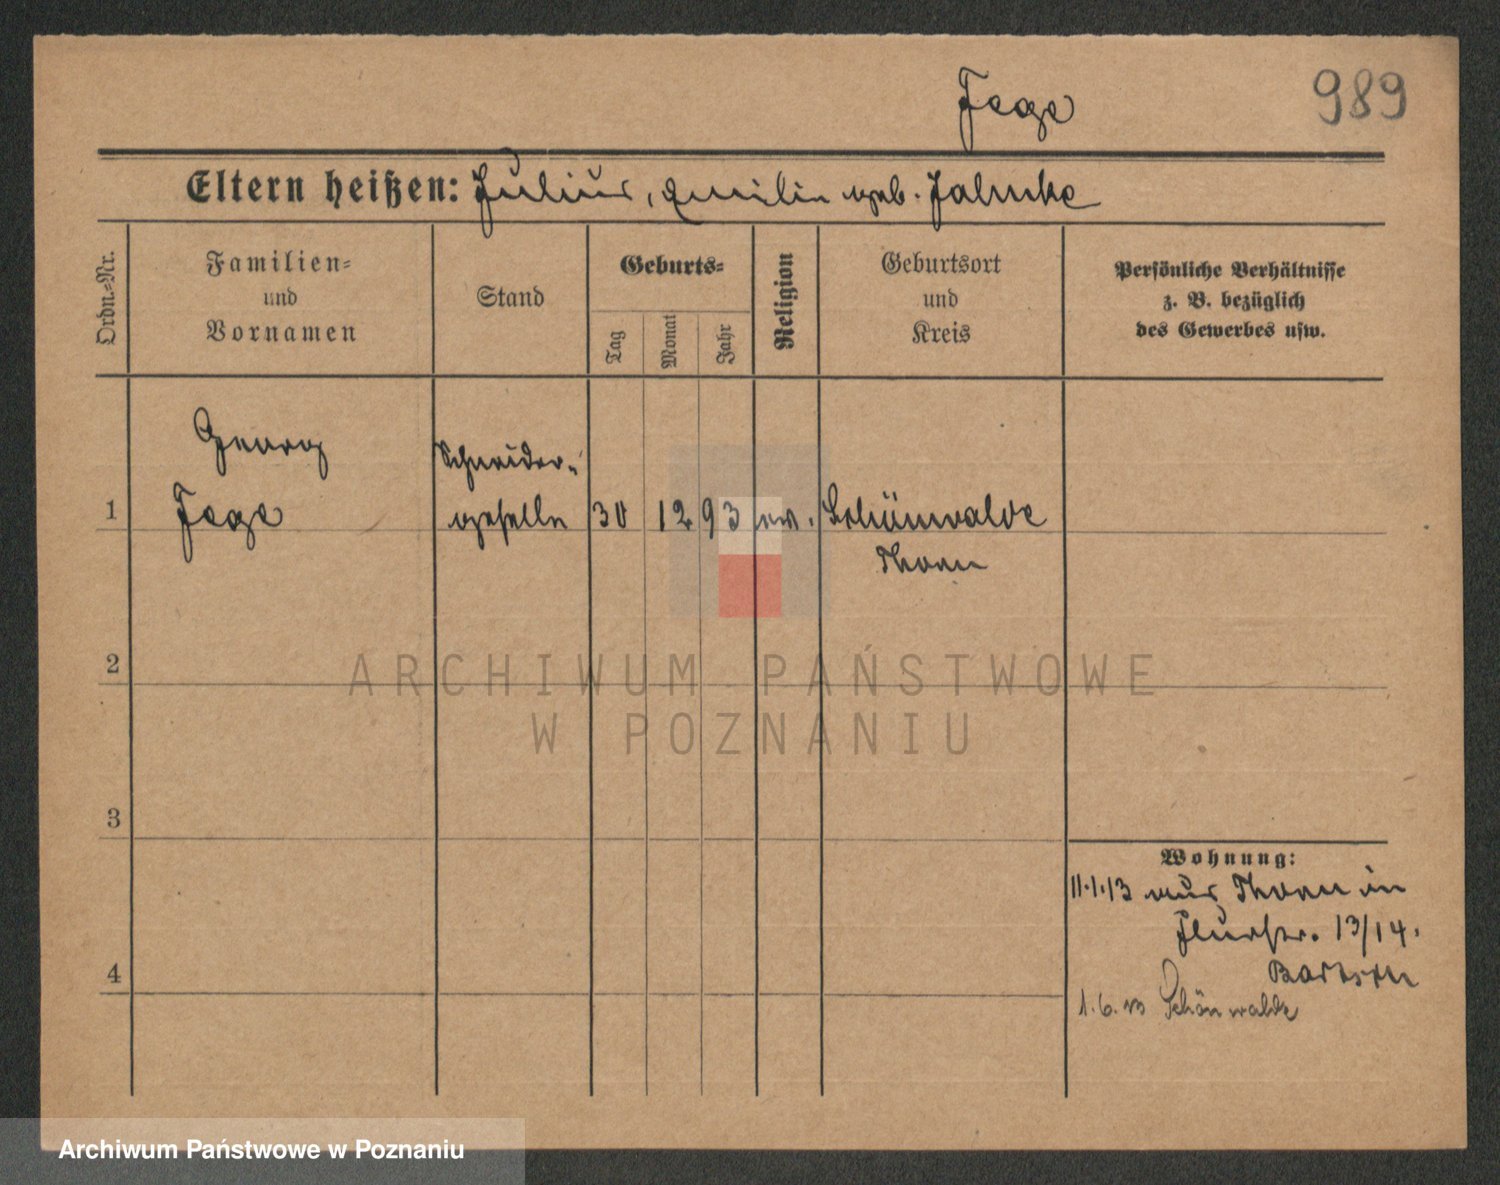 Fege
989
Eltern heißen: Julius, Emilie geb. Jahnke
Ordn.=Nr.
Familien=
und
Vornamen
Stand
Geburts=
Tag
Monat
Jahr
Religion
Geburtsort
und
Kreis
Persönliche Verhältnisse
z. B. bezüglich
des Gewerbes usw.
Georg
Schneider-
1 Fege geselle 30 12 93 ev. Schönwalde
Thorn
2
3
4
Wohnung:
11.1.13 aus Thorn in
Flurstr. 13/14.
1.6.13 Schönwalde
ARCHIWUM PAŃSTWOWE
W POZNANIU
Archiwum Państwowe w Poznaniu